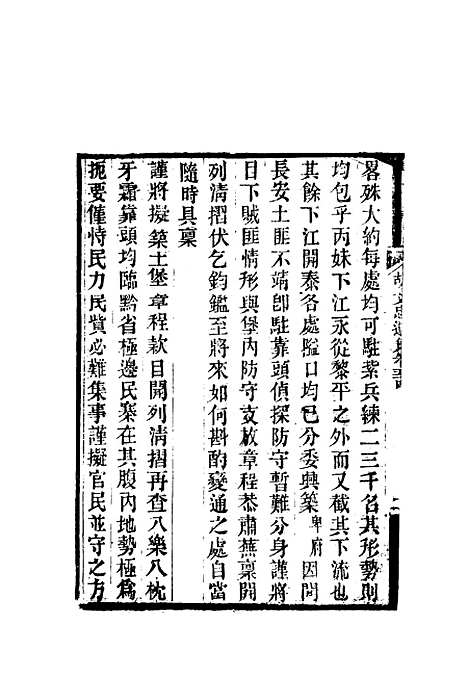 畧殊大約每處均可駐紮兵練二三千名其形勢則
均包乎丙妹下江永從黎平之外而又截其下流也
其餘下江開泰各處隘口均已分委興築卑府因問
長安土匪不靖卽駐靠頭偵探防守暫難分身謹將
日下賊匪情形與堡內防守支放章程恭肅蕪稟開
列清摺伏乞鈞鑑至將來如何斟酌變通之處自當
隨時具稟
謹將擬築土堡章程款目開列清摺再查八樂八枕
牙霜靠頭均臨黔省極邊民寨在其腹內地勢極爲
扼要僅恃民力民貲必難集事謹擬官民並守之方